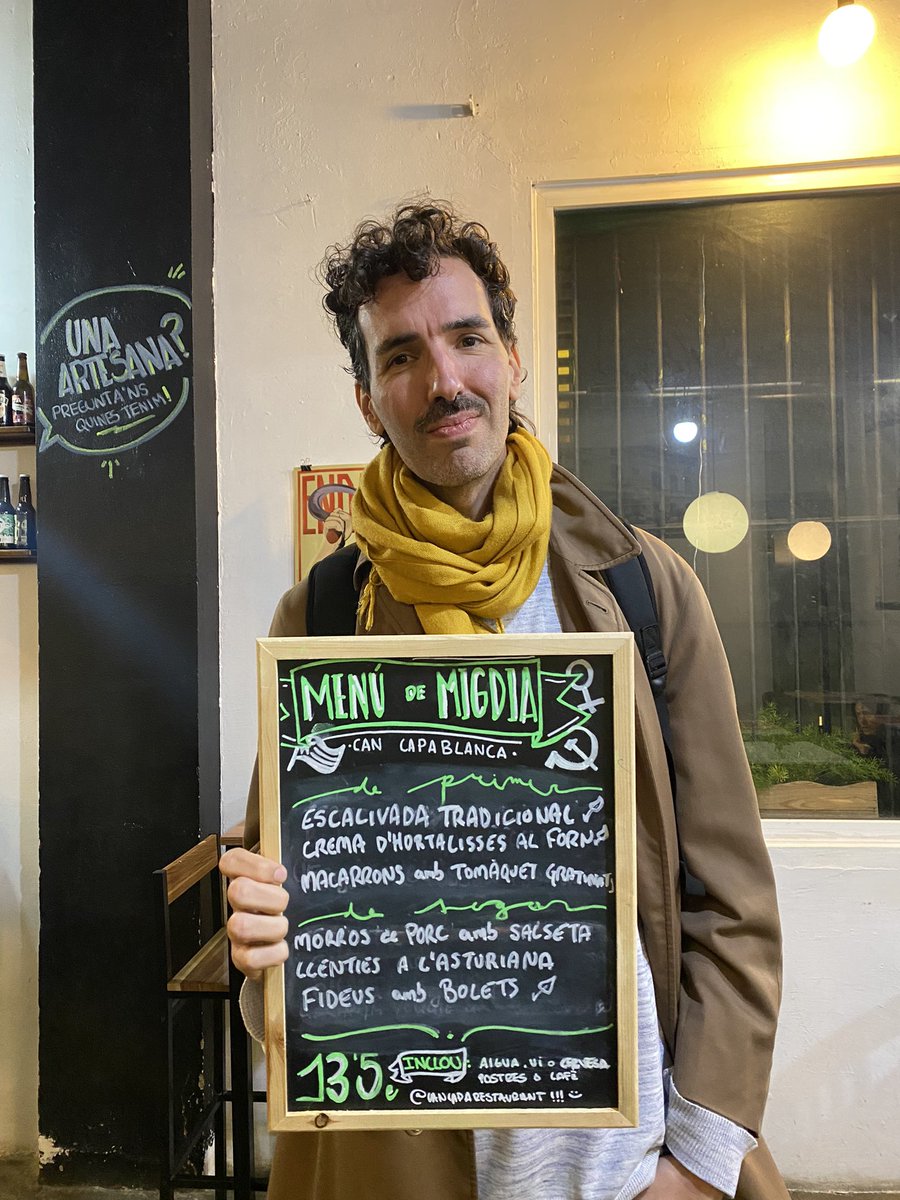 UNA
ARTESANA?
PREGUNTA'NS
QUINES TENIM!
END
MENÚ DE MIGDIA
·CAN CAPABLANCA·
de primer
ESCALIVADA TRADICIONAL
CREMA D'HORTALISSES AL FORN
MACARRONS amb TOMÀQUET GRATINATS
de segon
MORROS de PORC amb SALSETA
LLENTIES A L'ASTURIANA
FIDEUS amb BOLETS
13'5€ INCLOU: AIGUA, VI o CERVESA
POSTRES O CAFÈ
!!!